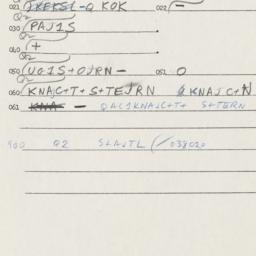 021 -Q KOK 022 —
Q2
030 PAJ1S .
Q2
040 + .
Q2
050 UG1S+OJRN — 051 O
060 KNAJC+T+ S+TEJRN & KNAJC+N
061 KNA — QAL1KNAJC+T+ S+TERN
900 Q2 S+AJTL (/ 038020